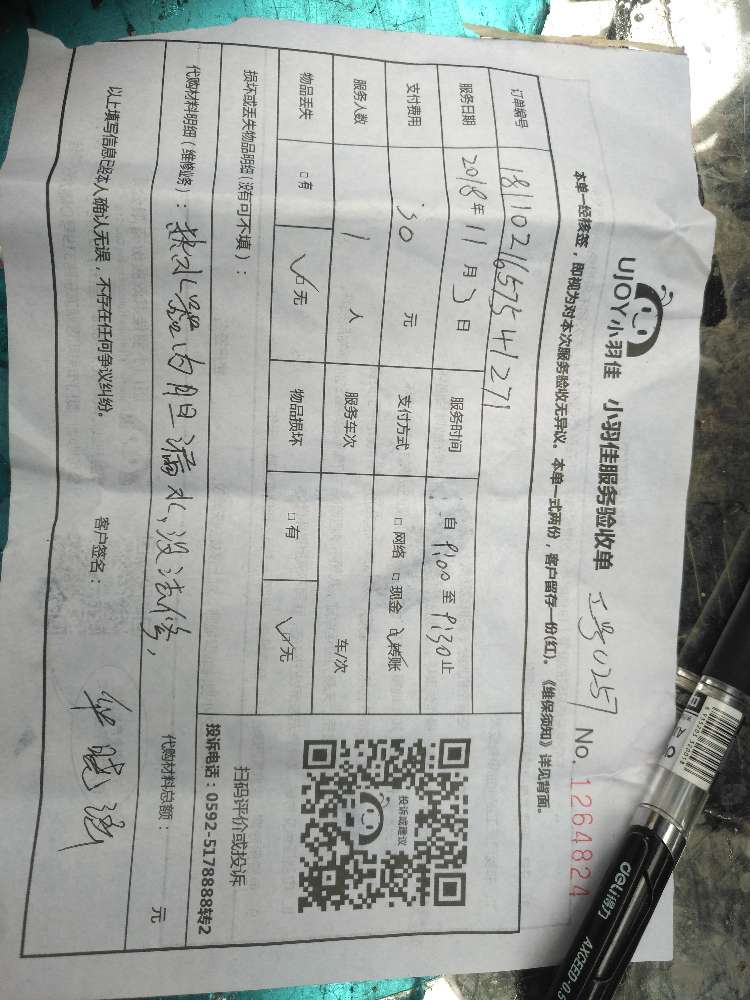 UJOY小羽佳 小羽佳服务验收单 工号0257 No. 1264824
本单一经核签，即视为对本次服务验收无异议。本单一式两份，客户留存一份(红)。《维保须知》详见背面。
订单编号 1811021657541271
服务日期 2018年 11 月 3 日 服务时间 自 9:00 至 9:30 止
支付费用 30 元 支付方式 □ 网络 □ 现金 ☑ 转账
服务人数 1 人 服务车次 车/次
物品丢失 □ 有 ☑ 无 物品损坏 □ 有 ☑ 无
损坏或丢失物品明细(没有可不填)：
投诉或建议
扫码评价或投诉
投诉电话：0592-5178888转2
代购材料明细（维修业务）：热水器内胆漏水，没法修，
代购材料总额： 元
以上填写信息已经本人确认无误，不存在任何争议纠纷。 客户签名：
deli得力 AXCEED-0.5